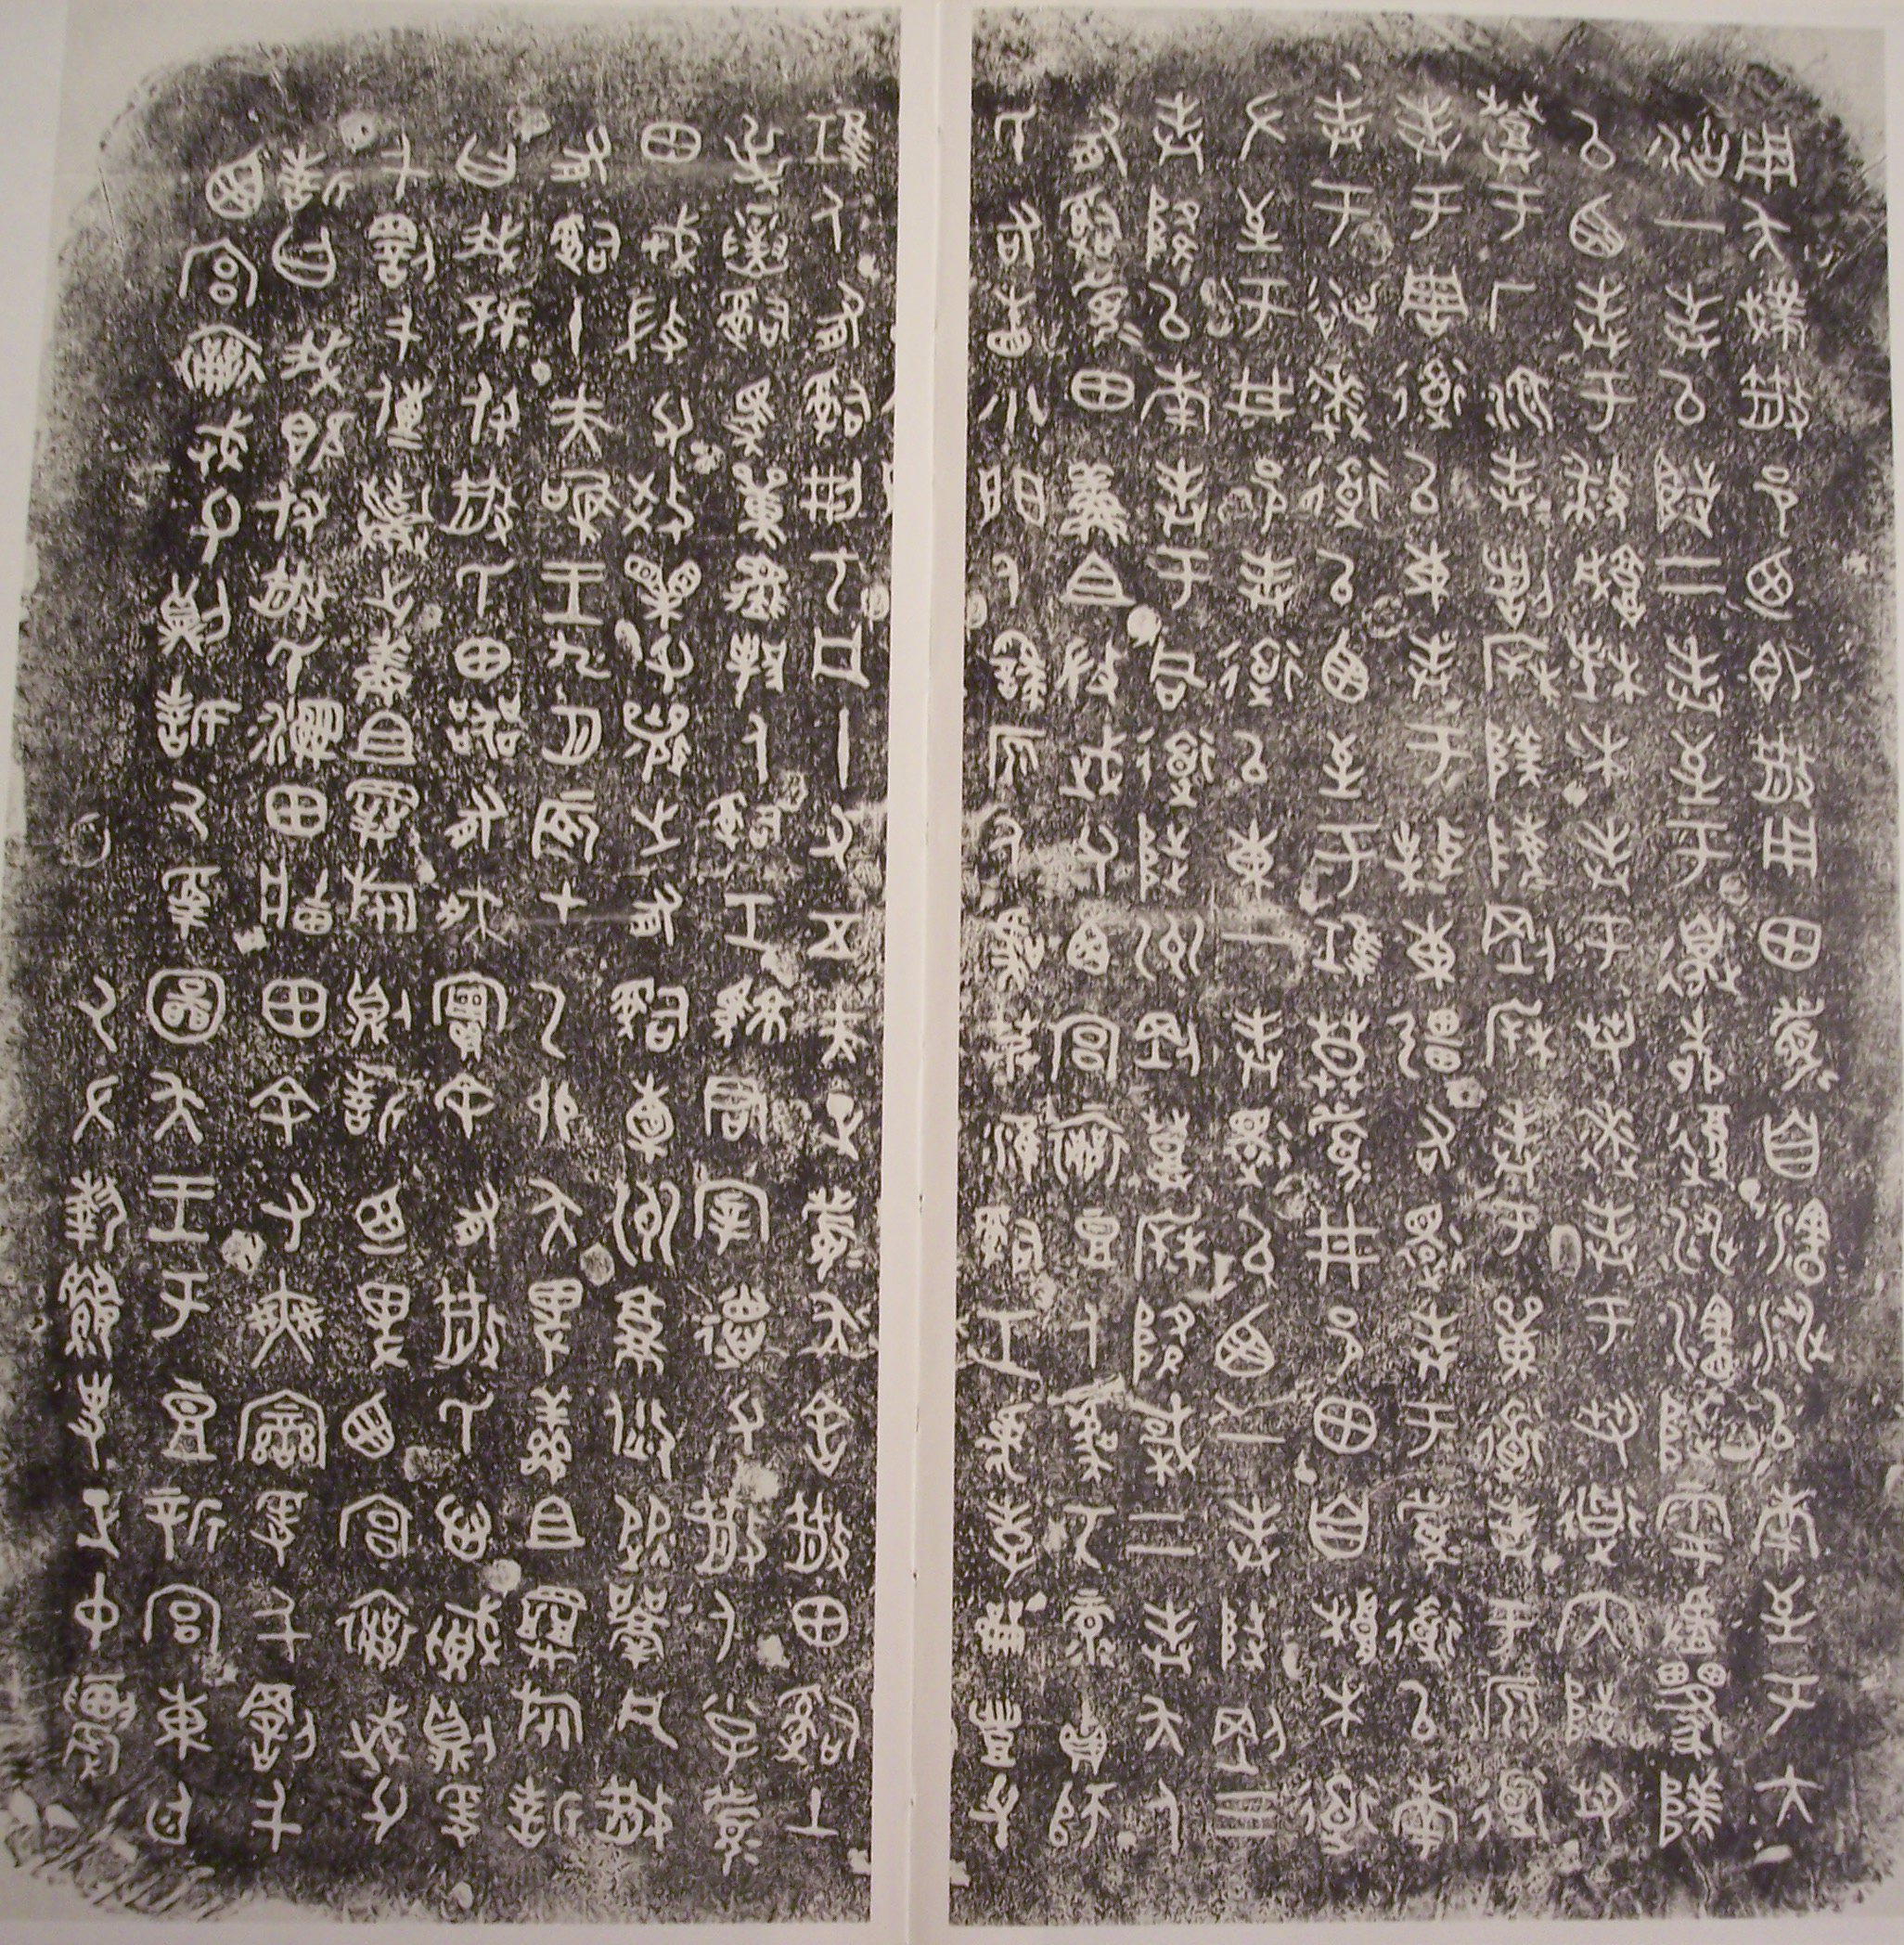 用夨𢦏散邑乃即散用田眉自瀗涉以南至于大
沽一封以陟二封至于邊柳復涉瀗陟雩𠭯𨻷
以西封于播城楮木封于芻逨封于芻道内陟芻
登于厂湶封剖𣏟𨻷陵剛𣏟封于單道封于原道
封于周道以東封于𣏟東疆右還封于眉道以南
封于逨道以西至于莫眉井邑田自桹木道
左至于井邑封道以東一封還以西一封陟剛三
封降以南封于同道陟州剛登𣏟降棫二封夨人
有司眉田鮮且微武父西宮襄豆人虞丂彔貞師
氏右眚小門人繇原人虞艿淮司工虎孝豐父
人有司刑丂凡十又五夫正眉夨舍散田司土
逆寅司馬單人司工君宰德父散人小子眉
田戎微父效父襄之有司橐州攸從鬲凡散
有司十夫唯王九月辰才乙卯夨卑鮮且旅誓
曰我既付散氏田器有爽實余有散氏心賊則爰
千罰千傳棄之鮮且旅則誓廼卑西宮襄武父
誓曰我既付散氏濕田牆田余有爽變爰千罰千
西宮襄武父則誓厥受圖夨王于豆新宮東廷
厥左執史正中農